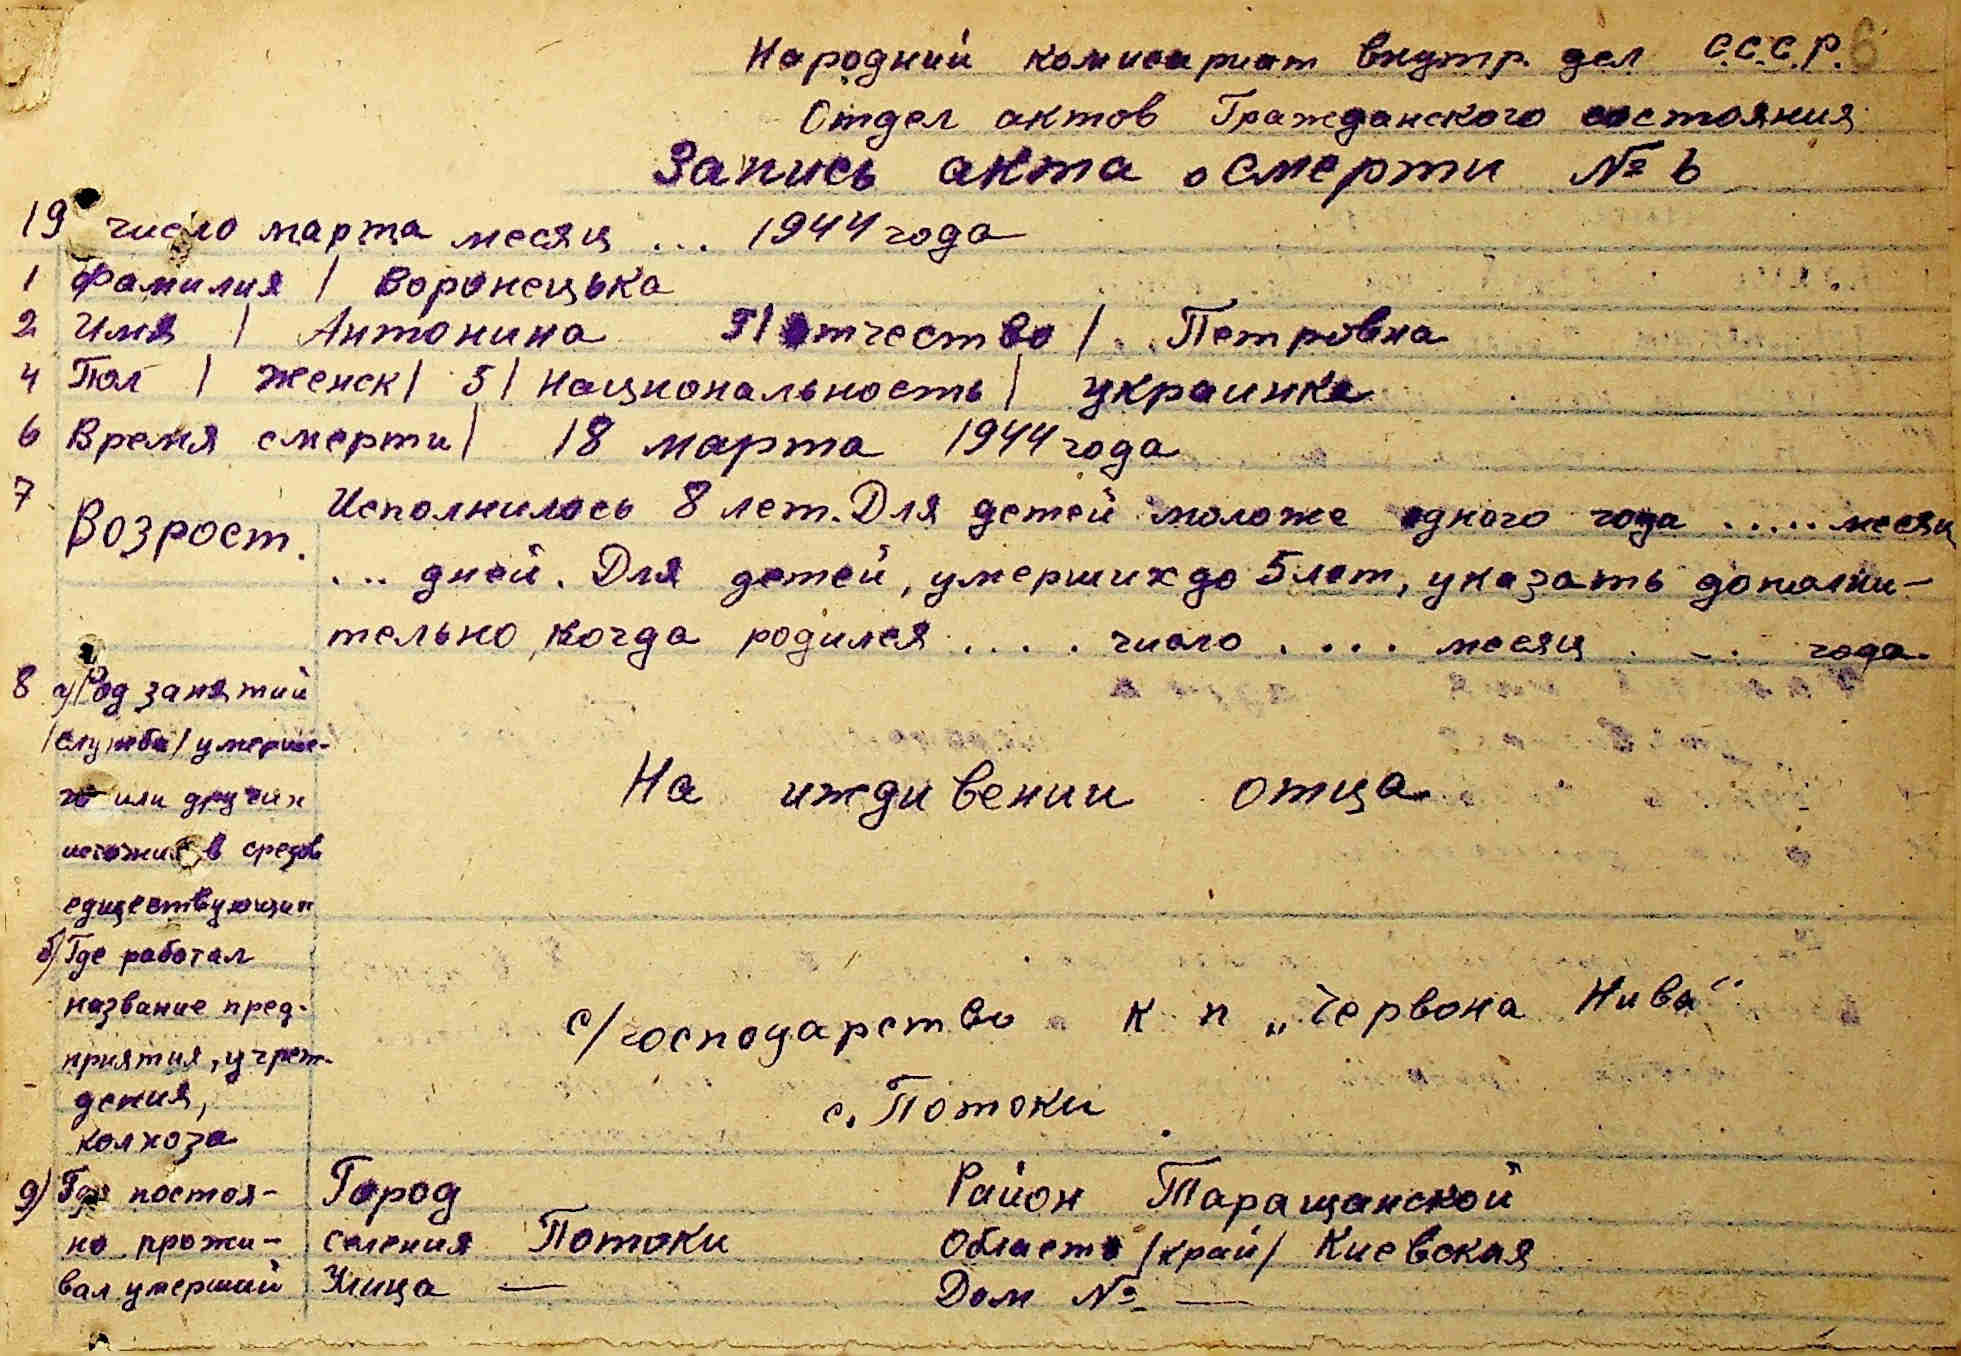 Народний комисариат внутр. дел С.С.С.Р. 6
Отдел актов Гражданского состояния
Запись акта о смерти № 6
19 число марта месяц ... 1944 года
1 Фамилия / Воронецька
2 Имя / Антонина отчество / Петровна
4 Пол / Женск / 5 / Национальность / украинка
6 Время смерти / 18 марта 1944 года
7 Возрост. Исполнилось 8 лет. Для детей моложе одного года ..... месяц
... дней. Для детей, умерших до 5 лет, указать дополни-
тельно, когда родился .... число .... месяц ... года.
8 а) Род занятий
/служба/ умерше-
го или других
источник в средов
существующих
На иждивении отца
б) Где работал
название пред-
приятия, учреж-
дения,
колхоза
с/господарство к п „Червона Нива"
с. Потоки
9) Где постоя- Город Район Таращанской
но прожи- селения Потоки Область /край/ Киевская
вал умерший Улица — Дом № —